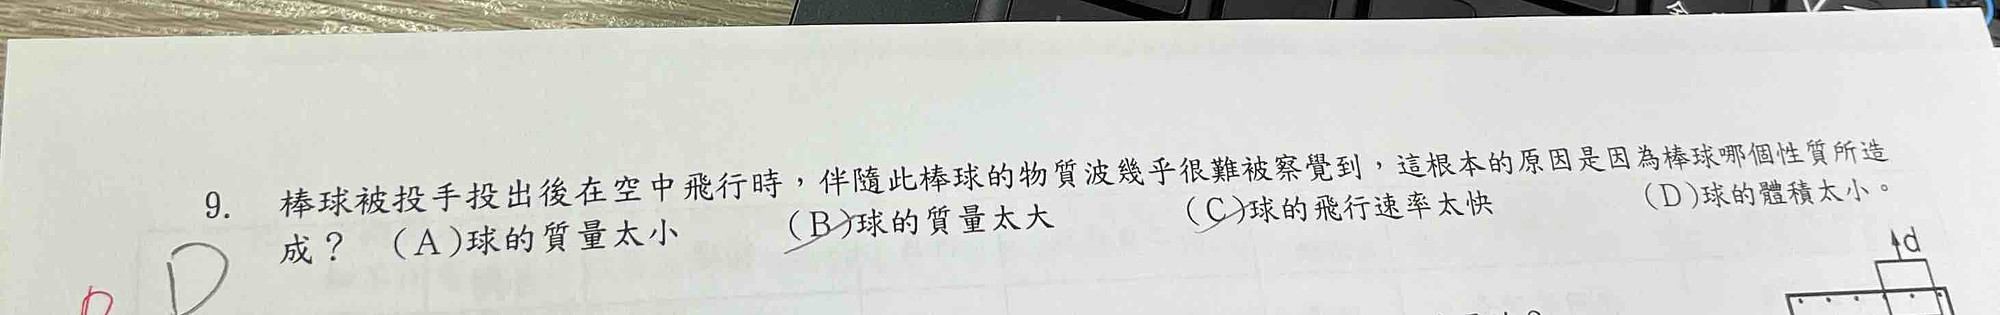 9. 棒球被投手投出後在空中飛行時，伴隨此棒球的物質波幾乎很難被察覺到，這根本的原因是因為棒球哪個性質所造
成？ (A)球的質量太小 (B)球的質量太大 (C)球的飛行速率太快 (D)球的體積太小。
D
d